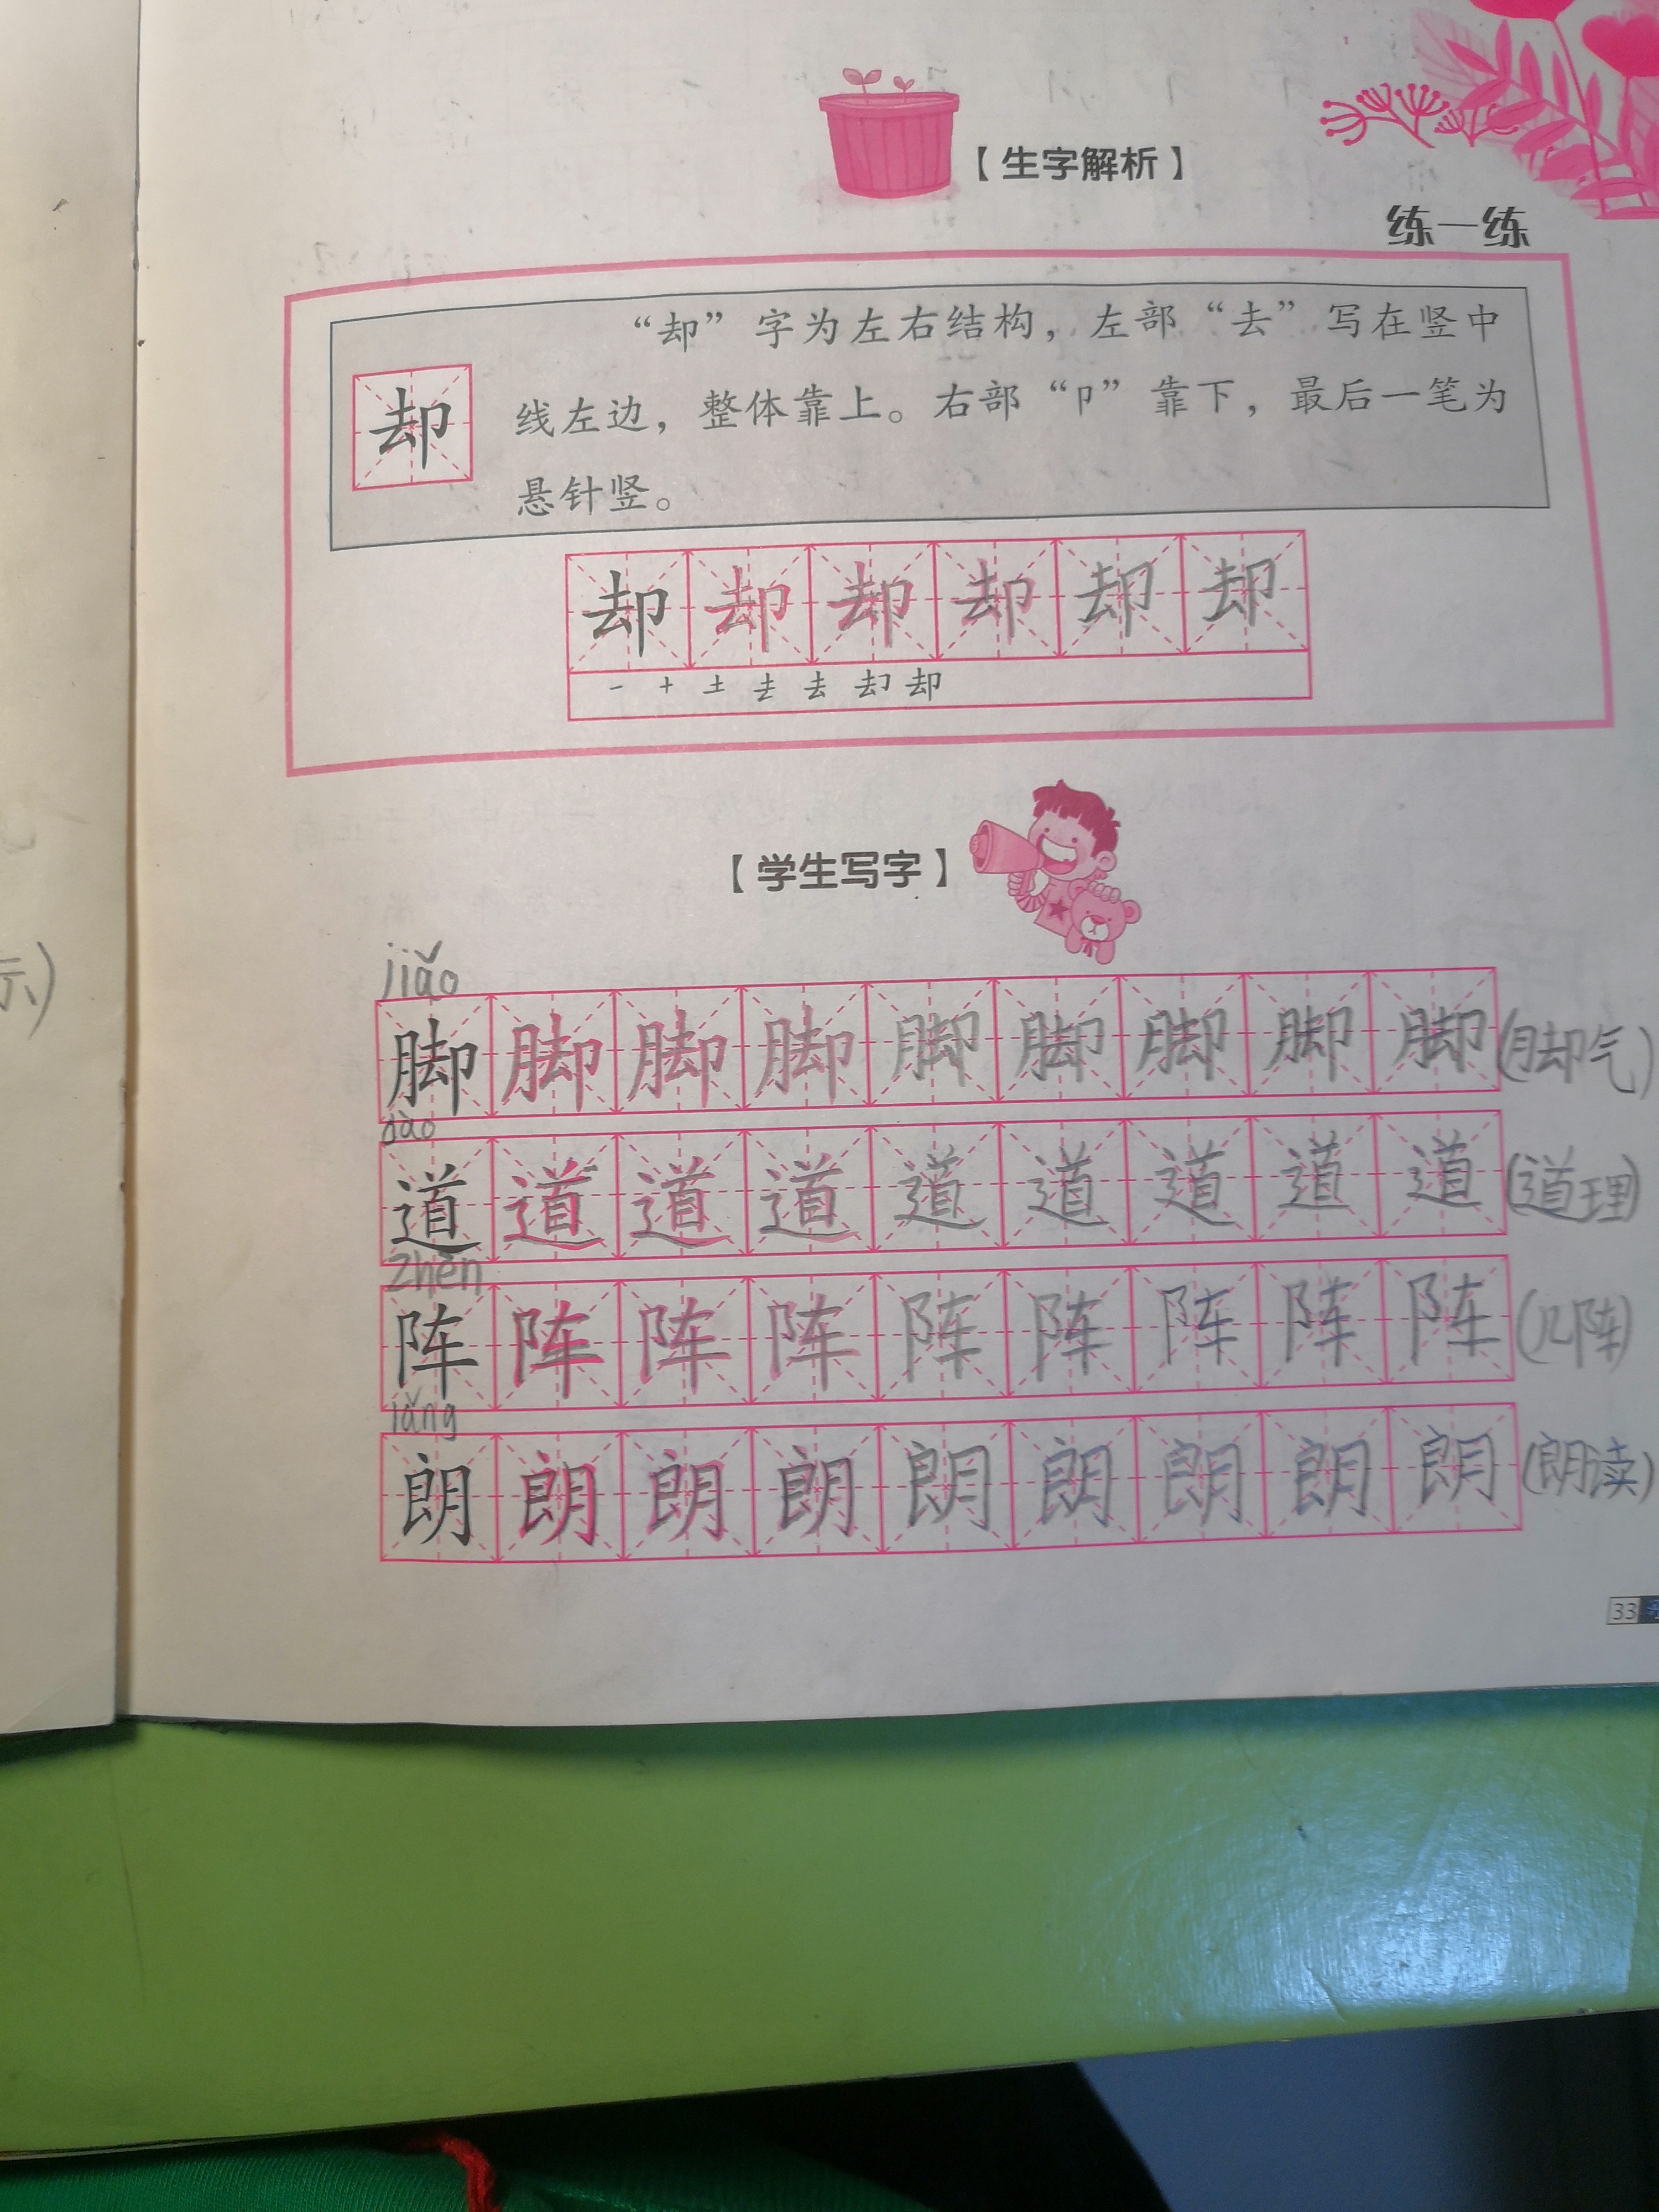 【生字解析】
练一练
“却”字为左右结构，左部“去”写在竖中
却
线左边，整体靠上。右部“卩”靠下，最后一笔为
悬针竖。
却却却却却却
一 十 土 去 去 却 却
【学生写字】
示)
jiǎo
脚脚脚脚脚脚脚脚脚(脚气)
dào
道道道道道道道道道(道理)
zhèn
阵阵阵阵阵阵阵阵阵(几阵)
lǎng
朗朗朗朗朗朗朗朗朗(朗读)
33